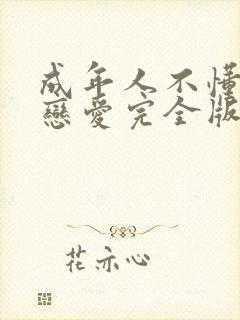 成年人不懂
戀愛完全版
花亦心